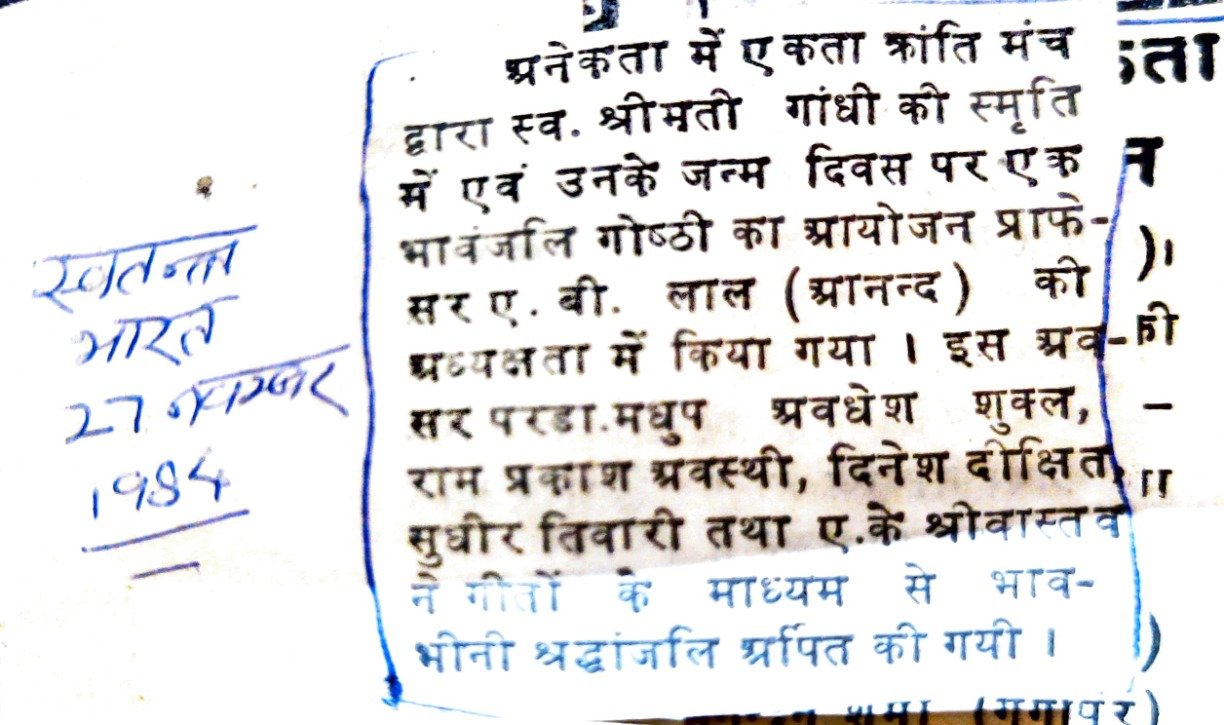 स्वतन्त्र
भारत
27 नवम्बर
1984
अनेकता में एकता क्रांति मंच
द्वारा स्व. श्रीमती गांधी की स्मृति
में एवं उनके जन्म दिवस पर एक
भावंजलि गोष्ठी का आयोजन प्राफे-
सर ए. बी. लाल (आनन्द) की
अध्यक्षता में किया गया । इस अव-
सर पर डा. मधुप अवधेश शुक्ल,
राम प्रकाश अवस्थी, दिनेश दीक्षित,
सुधीर तिवारी तथा ए.के श्रीवास्तव
ने गीतों के माध्यम से भाव-
भीनी श्रद्धांजलि अर्पित की गयी ।